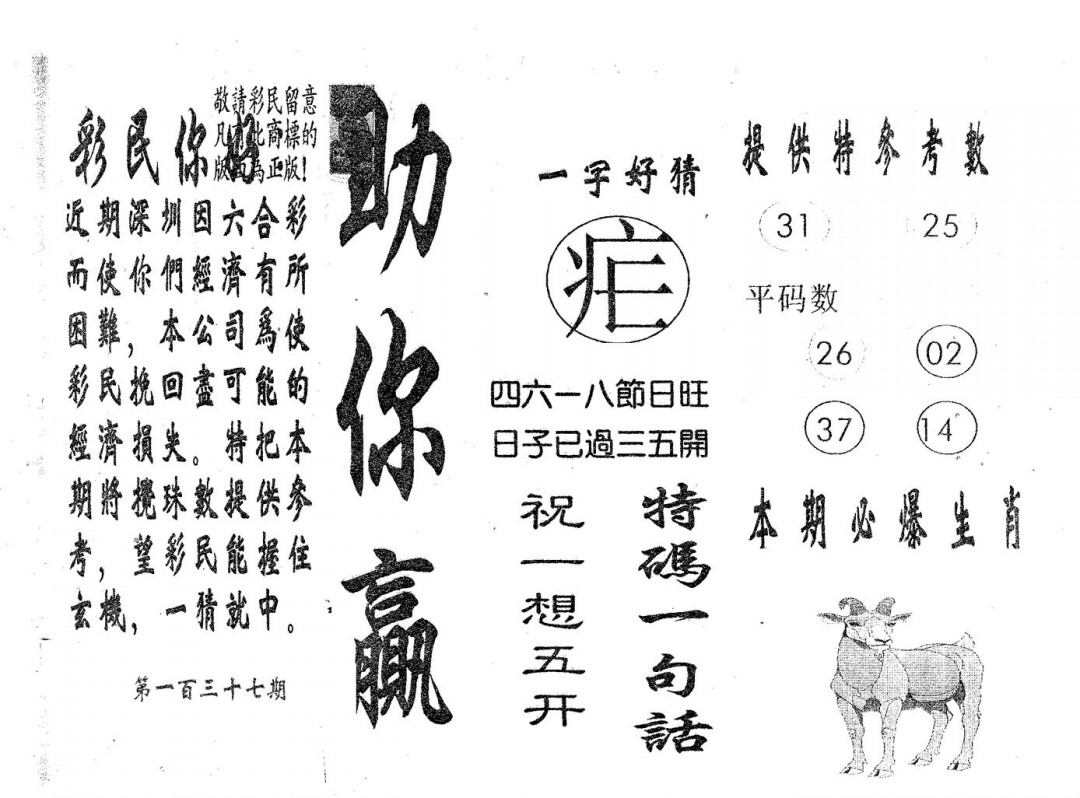 敬請彩民留意
凡有此商標的
版面為正版!
彩民你好
近期深圳因六合彩
而使你們經濟有所
困難,本公司爲使
彩民挽回盡可能的
經濟損失。特把本
期將攪珠數提供參
考,望彩民能握住
玄機,一猜就中。
第一百三十七期
助你贏
一字好猜
四六一八節日旺
日子已過三五開
特碼一句話
祝一想五开
提供特參考數
31 25
平码数
26 02
37 14
本期必爆生肖